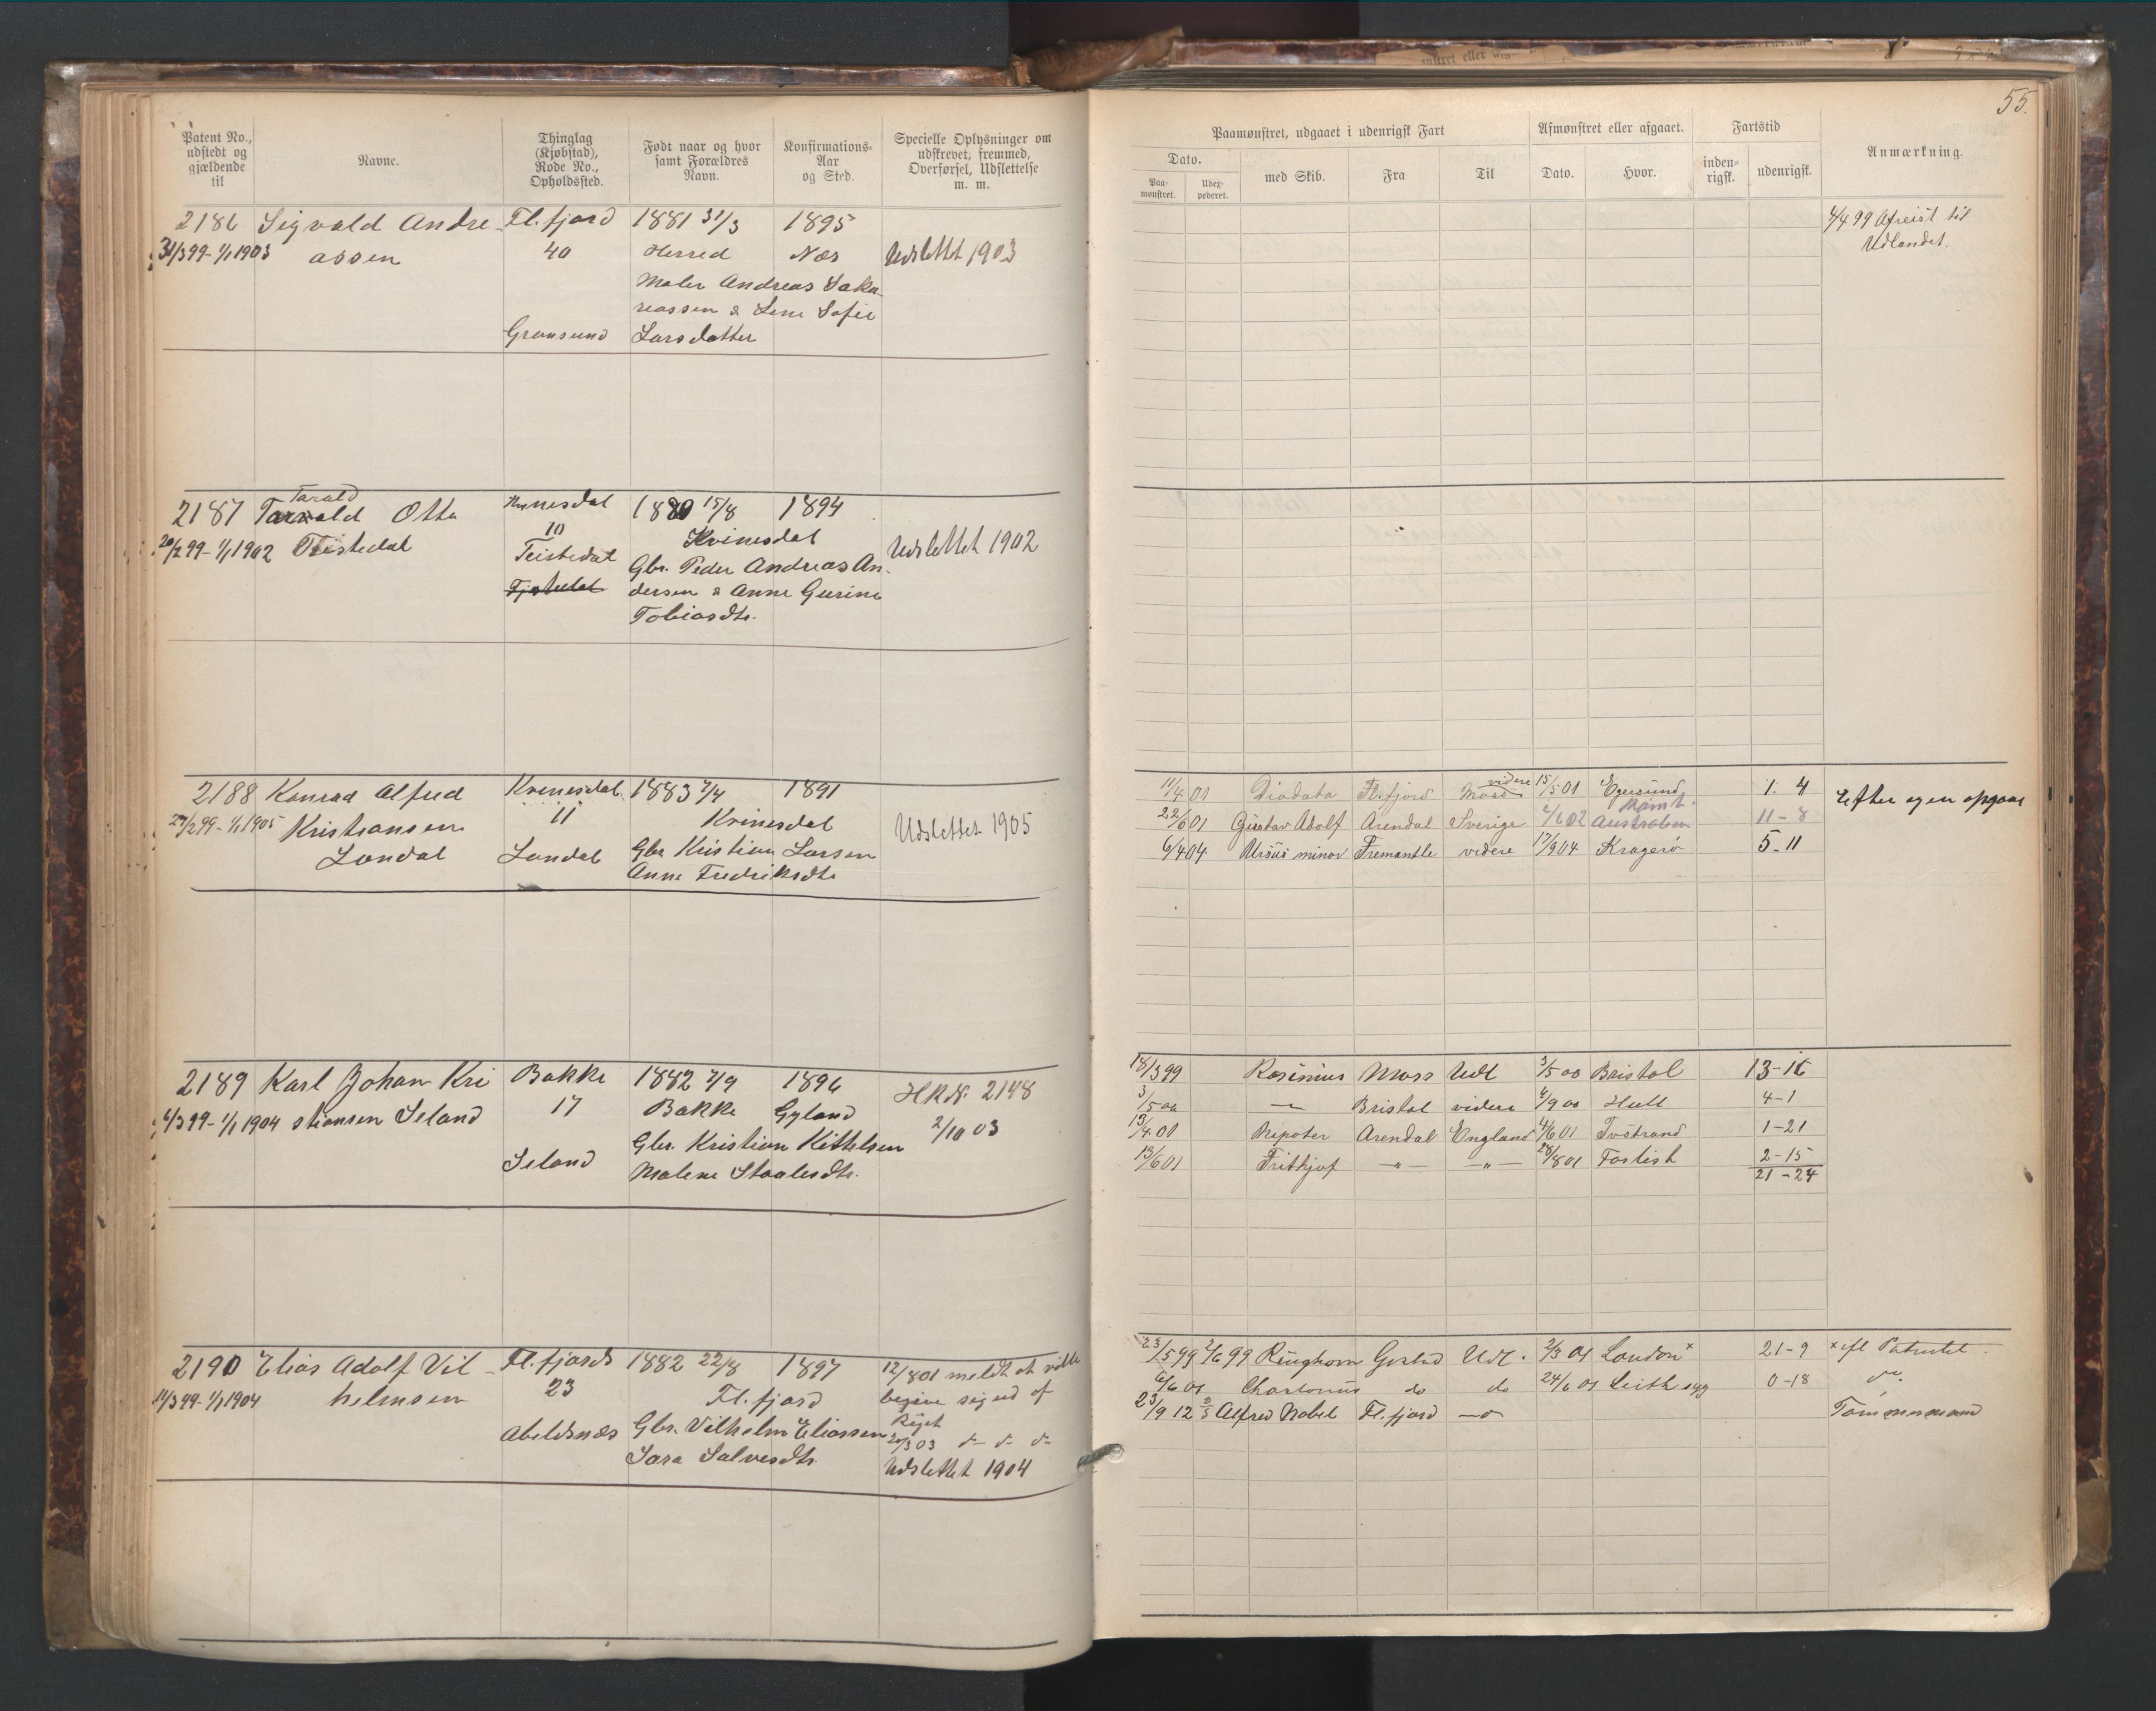 55.
Patent No., udstedt og gjældende til
Navne.
Thinglag (Kjøbstad), Rode No., Opholdssted.
Født naar og hvor samt Forældres Navn.
Konfirmations-Aar og Sted.
Specielle Oplysninger om udskrevet, fremmed, Overførsel, Udslettelse m. m.
Paamønstret, udgaaet i udenrigsk Fart
Afmønstret eller afgaaet.
Fartstid
Anmærkning.
Dato.
Paa-mønstret.
Udex-pederet.
med Skib.
Fra
Til
Dato.
Hvor.
inden-rigsk.
udenrigsk.
2186 Sigvald Andre- Fl.fjord 1881 31/3 1895
31/3 99 - 1/1 1903 assen 40 Herred Næs Udslettet 1903
Maler Andreas Saka-
reassen & Lene Sofie
Gransund Larsdatter
4/4 99 Afreist til
Udlandet.
Tarald
2187 Tarald Otto Kvinesdal 1880 15/8 1894
10 Kvinesdal
20/2 99 - 1/1 1902 Teistedal Teistedal Udslettet 1902
Gbr. Peder Andreas An-
dersen & Anne Gurine
Tobiasdtr.
2188 Konrad Alfred Kvinesdal 1883 7/4 1891
27/2 99 - 1/1 1905 Kristiansen 11 Kvinesdal Udslettet 1905
Londal Londal Gbr Kristian Larsen
Anne Fredriksdtr
11/4 01 Diodata Fl.fjord Moss videre 15/5 01 Egersund 1. 4 Efter egen opgave
22/6 01 Gustav Adolf Arendal Sverige 2/6 02 Australien Rømt. 11-8
6/4 04 Ursus minor Fremantle videre 17/9 04 Kragerø 5-11
2189 Karl Johan Kri Bakke 1882 7/9 1896 HRN. 2148
6/3 99 - 1/1 1904 stiansen Seland 17 Bakke Gyland 2/10 03
Gbr. Kristian Kittelsen
Seland Malene Staalesdtr.
18/3 99 Rosinius Moss Udl 3/5 00 Bristol
3/5 00 — Bristol videre 4/9 00 Hull 4-1
13/4 01 Arendal England 4/6 01 Tvestrand 1-21
13/6 01 Frithjof —"— —"— 28/8 01 2-15
21-24
2190 Elias Adolf Vil- Fl.fjord 1882 22/8 1897 12/8 01 meldt at ville
14/3 99 - 1/1 1904 helmsen 23 Fl.fjord begive sig ud af
Riget
Abeldsnæs Gbr. Vilhelm Eliassen 20/3 03 d- d- d-
Sara Salvesdtr. Udslettet 1904
23/5 99 2/6 99 Ringhorn Udl. 2/3 01 London x 21-9 x ifl Patentet.
6/6 01 do do 24/6 01 Leith syg 0-18 do.
23/9 12 Alfred Nobel Fl.fjord —o Tømmermand